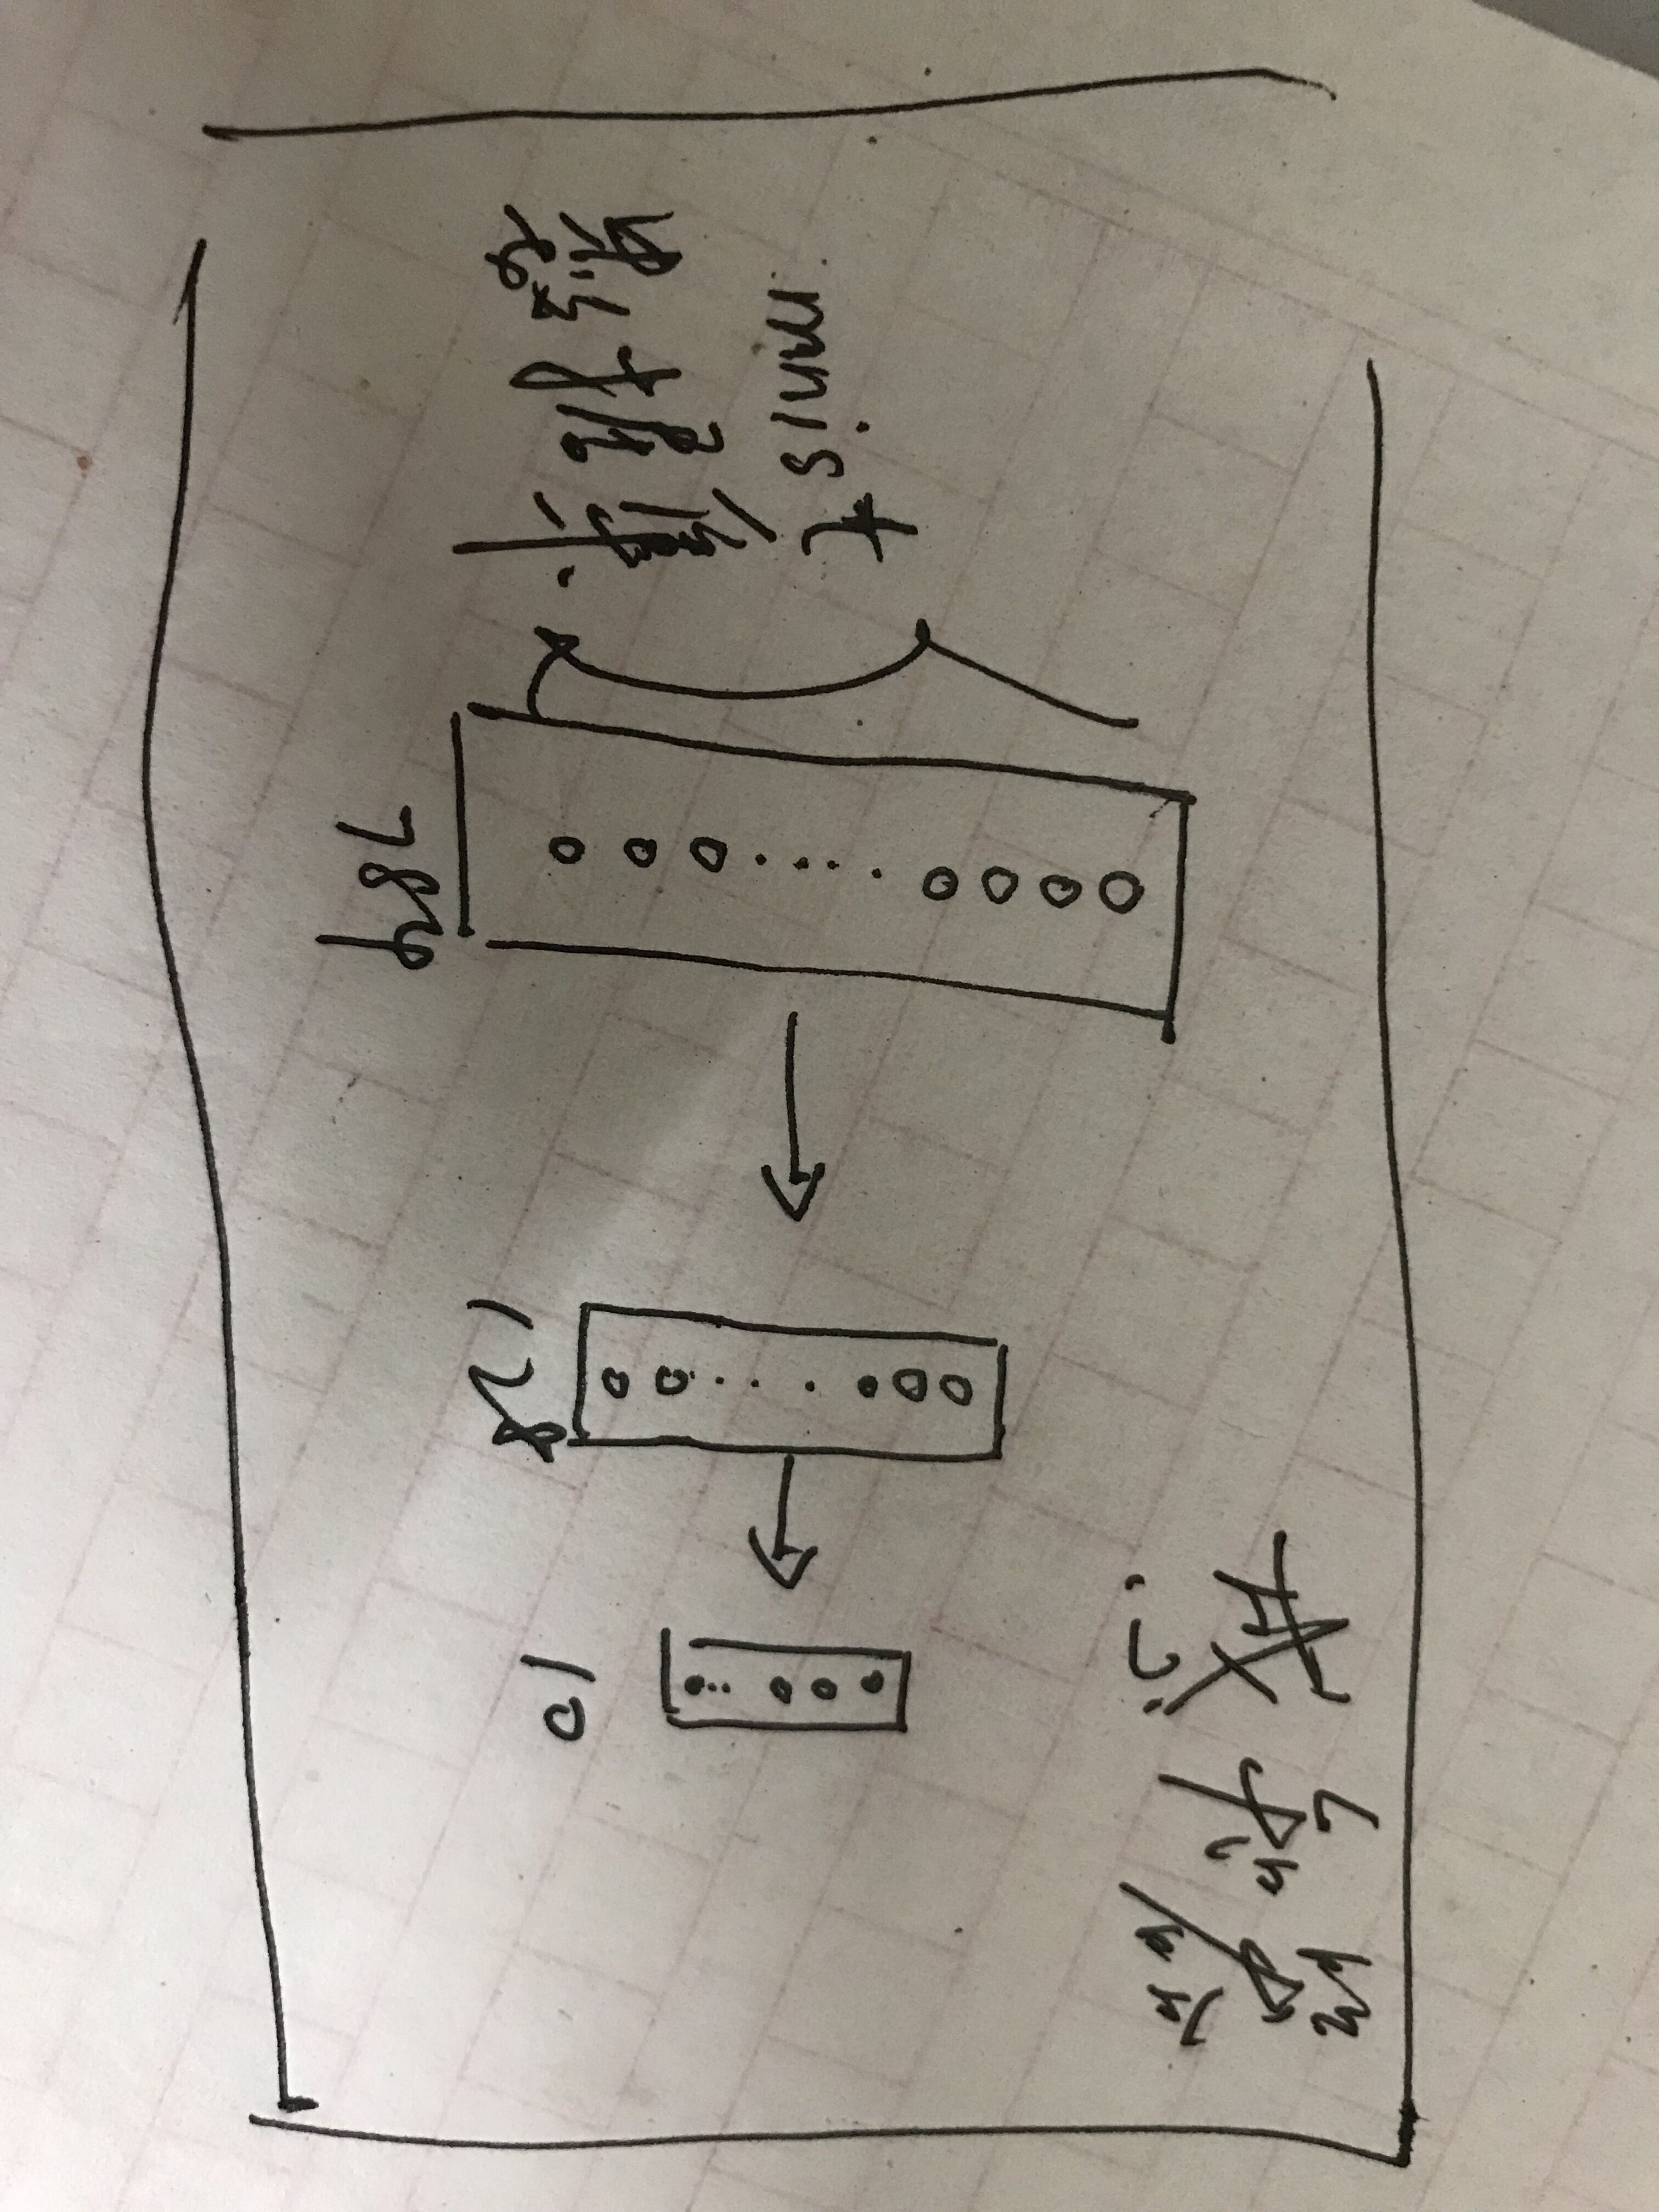 感知器
mnist
数据集
784
128
10